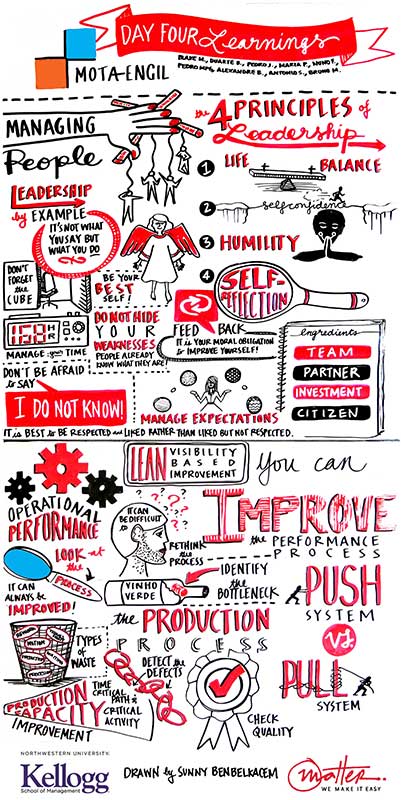 DAY FOUR Learnings
MOTA-ENGIL
BLAKE M., DUARTE B., PEDRO J., MARIA P., NUNO F.,
PEDRO MPM, ALEXANDRE B., ANTONIO S., BRUNO M.
MANAGING
People
the 4 PRINCIPLES of
Leadership
1 LIFE BALANCE
2 self confidence
3 HUMILITY
4 SELF-
REFLECTION
LEADERSHIP
by EXAMPLE
IT'S NOT WHAT
YOU SAY BUT
WHAT YOU DO
DON'T
FORGET
the
CUBE
BE YOUR
BEST
SELF!
168 HR
MANAGE your TIME
DO NOT HIDE
YOUR
WEAKNESSES
PEOPLE ALREADY
KNOW WHAT THEY ARE!
FEED BACK
IT is YOUR MORAL OBLIGATION
to IMPROVE YOURSELF!
Ingredients
TEAM
PARTNER
INVESTMENT
CITIZEN
DON'T BE AFRAID
to SAY
I DO NOT KNOW!
MANAGE EXPECTATIONS
IT is BEST to BE RESPECTED and LIKED RATHER THAN LIKED BUT NOT RESPECTED.
LEAN VISIBILITY
BASED
IMPROVEMENT
you can
IMPROVE
the PERFORMANCE
PROCESS
OPERATIONAL
PERFORMANCE
IT CAN
BE DIFFICULT
to
RETHINK
the
PROCESS
LOOK at
the
PROCESS
IT CAN
ALWAYS be
IMPROVED!
VINHO
VERDE
IDENTIFY
the
BOTTLENECK
PUSH
SYSTEM
VS.
PULL
SYSTEM
the PRODUCTION
PROCESS
TYPES
of
WASTE
DETECT the
DEFECTS
TIME
CRITICAL
PATH &
CRITICAL
ACTIVITY
PRODUCTION
CAPACITY
IMPROVEMENT
CHECK
QUALITY
NORTHWESTERN UNIVERSITY
Kellogg
School of Management
DRAWN by SUNNY BENBELKACEM
matter.
WE MAKE IT EASY